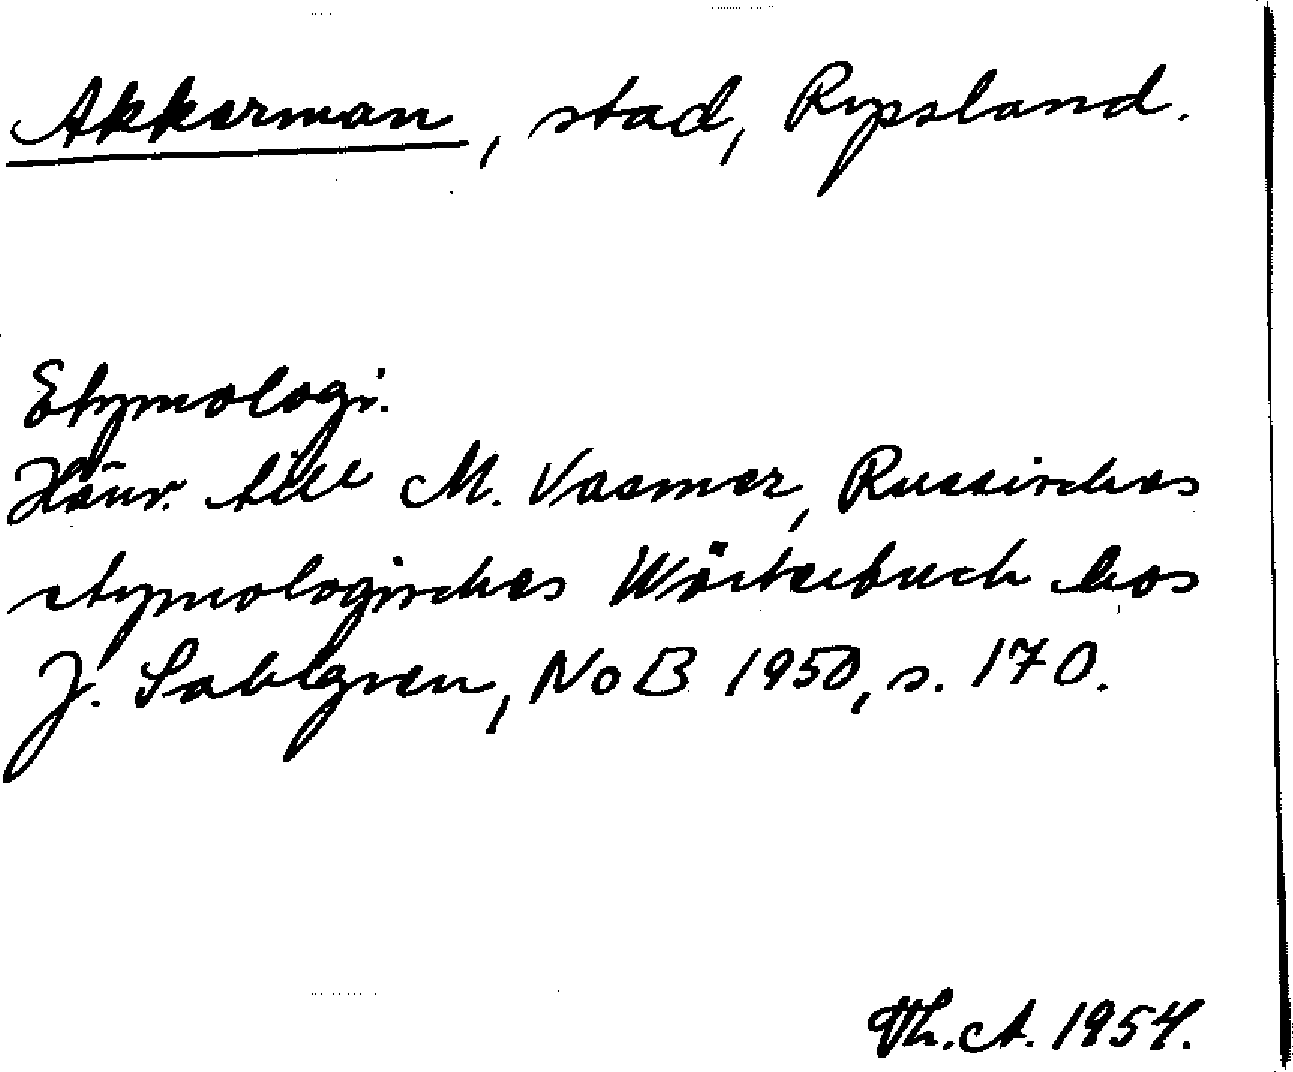 Akkerman, stad, Ryssland.
Etymologi.
Hänv. till M. Vasmer, Russisches
etymologisches Wörterbuch hos
J. Sahlgren, NoB 1950, s. 170.
Th. A. 1954.